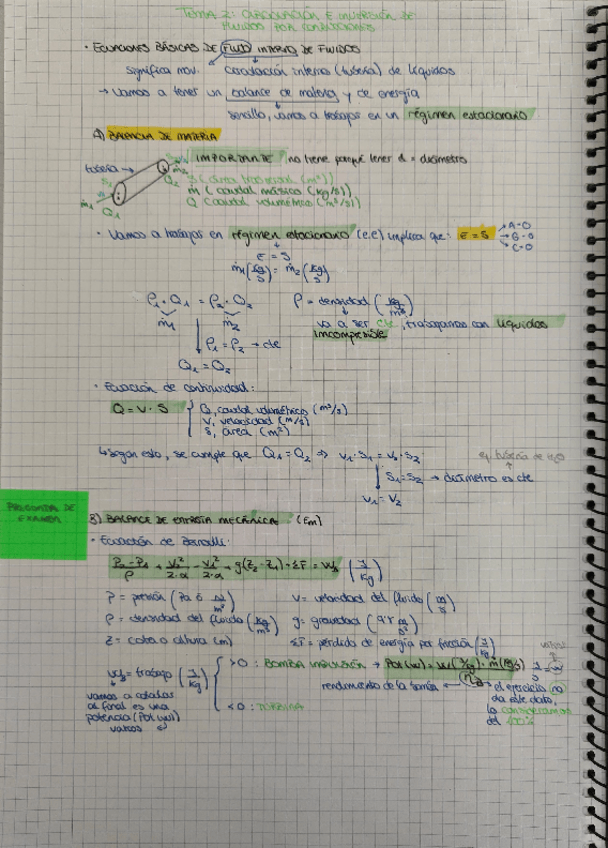 TEMA 2: CIRCULACIÓN E IMPULSIÓN DE
FLUIDOS POR CONDUCCIONES
· ECUACIONES BÁSICAS DE FLUJO INTERNO DE FLUIDOS
significa mov. circulación interna (tubería) de líquidos
→ Vamos a tener un balance de materia y de energía
sencillo, vamos a trabajar en un régimen estacionario
A) BALANCE DE MATERIA
tubería →
IMPORTANTE no tiene porqué tener d = diámetro
S (área transversal (m²))
ṁ (caudal másico (kg/s))
Q (caudal volumétrico (m³/s))
ṁ₁ Q₁ ṁ₂ Q₂
· Vamos a trabajar en régimen estacionario (e.e) implica que: E = S → A=0 → G=0 → C=0
E = S
ṁ₁ (kg/s) = ṁ₂ (kg/s)
ρ₁ · Q₁ = ρ₂ · Q₂ ρ = densidad (kg/m³)
ṁ₁ ṁ₂ va a ser cte, trabajamos con líquidos
incompresible
ρ₁ = ρ₂ → cte
Q₁ = Q₂
· Ecuación de continuidad:
Q = V · S { Q, caudal volumétrico (m³/s)
V, velocidad (m/s)
S, área (m²)
↳ según esto, se cumple que Q₁ = Q₂ ⇒ v₁·S₁ = v₂·S₂
ej. tubería de H₂O
S₁ = S₂ → diámetro es cte
v₁ = v₂
PREGUNTA DE
EXAMEN
B) BALANCE DE ENERGÍA MECÁNICA: (Em)
· Ecuación de Bernoulli:
P₂-P₁/ρ + v₂²/2·α - v₁²/2·α + g(z₂-z₁) + ΣF = Ws (J/kg)
P = presión (Pa ó N/m²) V = velocidad del fluido (m/s)
ρ = densidad del fluido (kg/m³) g = gravedad (9'8 m/s²)
z = cota o altura (m) ΣF = pérdida de energía por fricción (J/kg)
Ws = trabajo (J/kg) { >0 : BOMBA IMPULSIÓN → Pot (w) = Ws (J/kg) · ṁ (kg/s) / η J/s = W
vatios
rendimiento de la bomba ← → si el ejercicio no
da este dato,
lo consideramos
del 100%
<0 : TURBINA
vamos a calcular
al final es una
potencia (Pot (w))
vatios